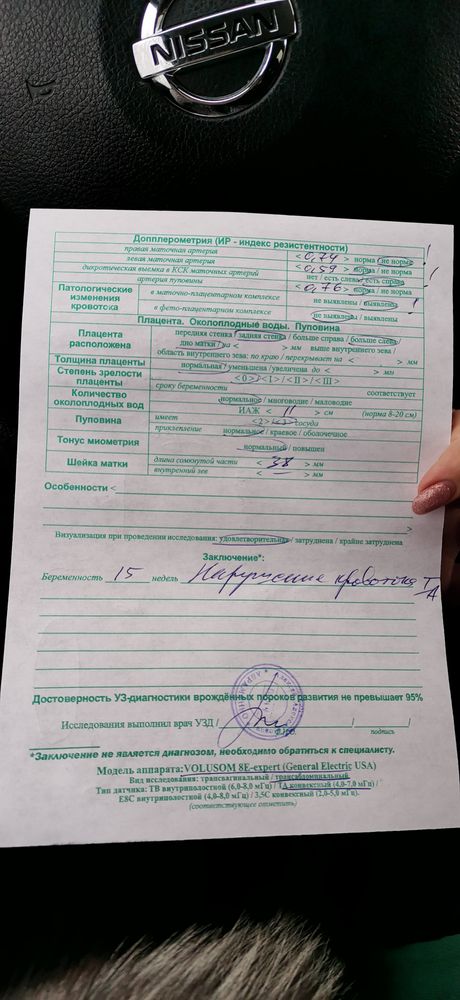 NISSAN
Допплерометрия (ИР - индекс резистентности)
правая маточная артерия < 0,74 > норма / не норма !
левая маточная артерия < 0,59 > норма / не норма
дикротическая выемка в КСК маточных артерий нет / есть слева / есть справа !
артерия пуповины < 0,76 > норма / не норма
Патологические изменения кровотока
в маточно-плацентарном комплексе не выявлены / выявлены !
в фето-плацентарном комплексе не выявлены / выявлены
Плацента. Околоплодные воды. Пуповина
Плацента расположена
передняя стенка / задняя стенка / больше справа / больше слева /
дно матки / на < > мм выше внутреннего зева /
область внутреннего зева: по краю / перекрывает на < > мм
Толщина плаценты нормальная / уменьшена / увеличена до < > мм
Степень зрелости плаценты < 0 > / < I > / < II > / < III >
сроку беременности соответствует
Количество околоплодных вод нормальное / многоводие / маловодие
ИАЖ < 11 > см (норма 8-20 см)
Пуповина имеет <2> <3> сосуда
прикрепление нормальное / краевое / оболочечное
Тонус миометрия нормальный / повышен
Шейка матки длина сомкнутой части < 38 > мм
внутренний зев < — > мм
Особенности <
>
Визуализация при проведении исследования: удовлетворительная / затруднена / крайне затруднена
Заключение*:
Беременность 15 недель Нарушение кровотока I А
Достоверность УЗ-диагностики врождённых пороков развития не превышает 95%
Исследования выполнил врач УЗД / / /
подпись
*Заключение не является диагнозом, необходимо обратиться к специалисту.
Модель аппарата: VOLUSOM 8E-expert (General Electric USA)
Вид исследования: трансвагинальный / трансабдоминальный
Тип датчика: ТВ внутриполостной (6,0-8,0 мГц) / ТА конвексный (4,0-7,0 мГц) /
E8C внутриполостной (4,0-8,0 мГц) / 3,5С конвексный (2,0-5,0 мГц).
(соответствующее отметить)